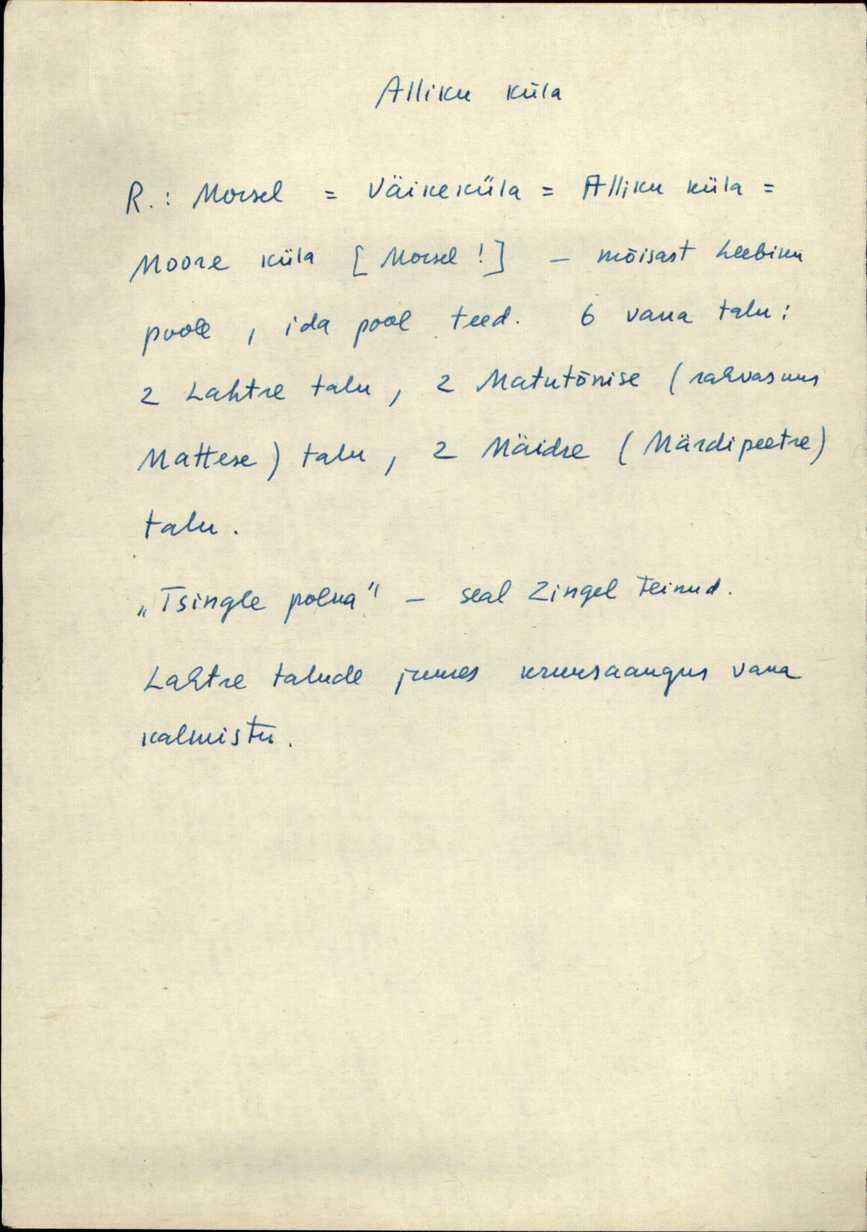 Alliku küla
R.: Morsel = Väikeküla = Alliku küla =
Moore küla [Morsel!] – mõisast Leebiku
poole, ida pool teed. 6 vana talu:
2 Lahtre talu, 2 Matutõnise (rahvasuus
Mattese) talu, 2 Mäidre (Märdipeetre)
talu.
„Tsingle polka” – seal Zingel teinud.
Lahtre talude juures kruusaaugus vana
kalmistu.